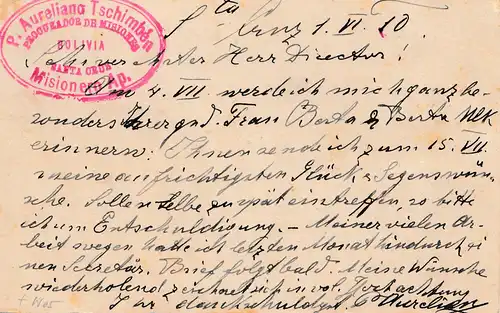 P. Aureliano Tschimben
PROCURADOR DE MISIONES
BOLIVIA
SANTA CRUZ
Misionero Ap.
Sta Cruz 1. VI. 10.
Sehr verehrter Herr Director!
Am 4. VII. werde ich mich ganz be-
sonders Ihrer gnd. Frau Berta & Berta
erinnern: Ihnen sende ich zum 15. VII.
meine aufrichtigsten Glück & Segenswün-
sche. Sollen selbe zu spät eintreffen, so bitte
ich um Entschuldigung. – Meiner vielen Ar-
beit wegen hatte ich letzten Monat hindurch ei-
nen Secretär. Brief folgt bald. Meine Wünsche
wiederholend zeichnet sich in vol. Hochachtung
Ihr dankschuldgst. P Aurelian